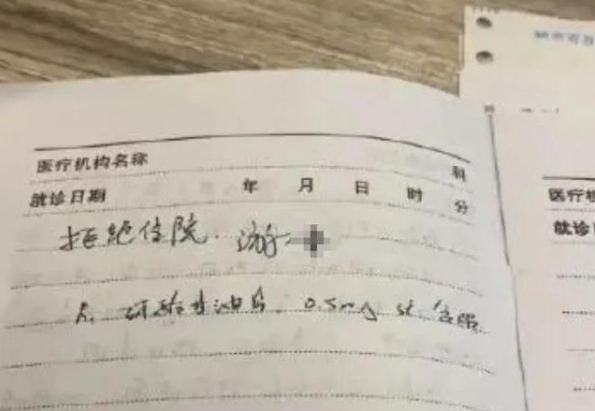 医疗机构名称 科
就诊日期 年 月 日 时 分
拒绝住院. 游
R. 硝酸甘油片 0.5mg st 含服
医疗
就诊